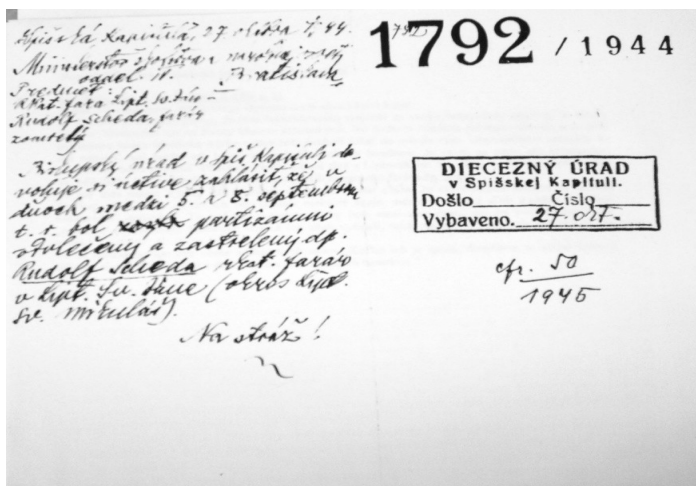 Spišská Kapitula, 27 októbra 1944.
Ministerstvo školstva a národnej osvety
oddel. II. Bratislava
Predmet:
r.kat. fara Lipt. Sv. Ján –
Rudolf Scheda, farár
zomrelý
Biskupský úrad v Spiš. Kapituli do-
voľuje si úctive zahlásiť, že v
dňoch medzi 5. a 8. septembrom
t. r. bol partizánmi
odvlečený a zastrelený dp.
Rudolf Scheda rkat. farár
v Lipt. Sv. Jáne (okres Lipt.
Sv. Mikuláš).
Na stráž!
1792 / 1944
DIECEZNÝ ÚRAD
v Spišskej Kapituli.
Došlo Číslo
Vybaveno. 27. okt.
cfr. 50
1945